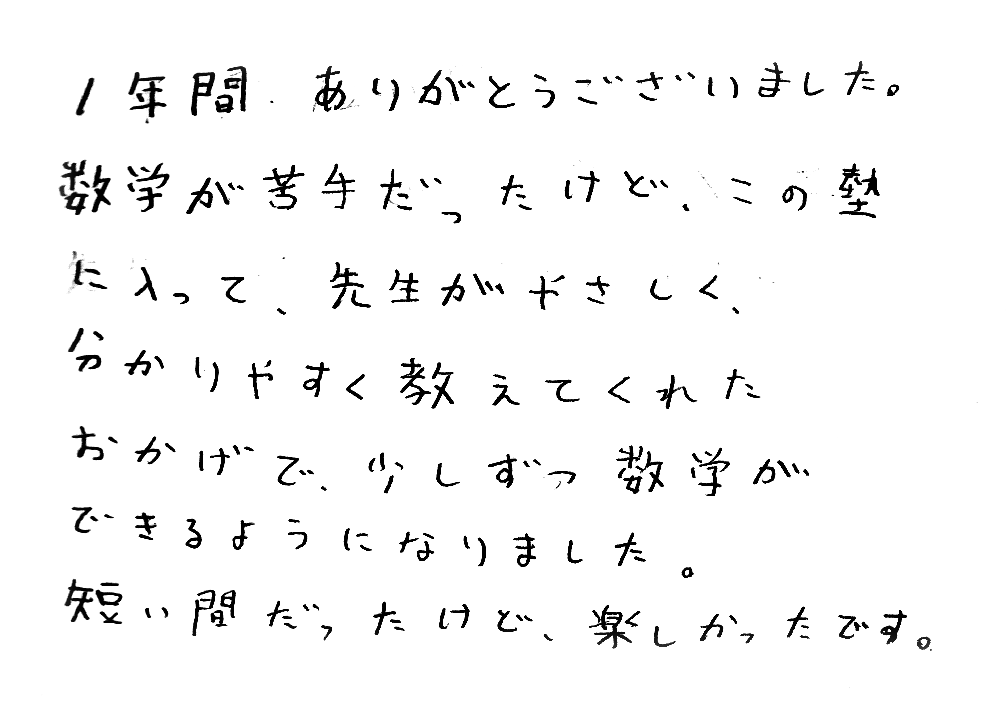 1年間 ありがとうございました。
数学が苦手だったけど、この塾
に入って、先生がやさしく、
分かりやすく教えてくれた
おかげで、少しずつ数学が
できるようになりました。
短い間だったけど、楽しかったです。